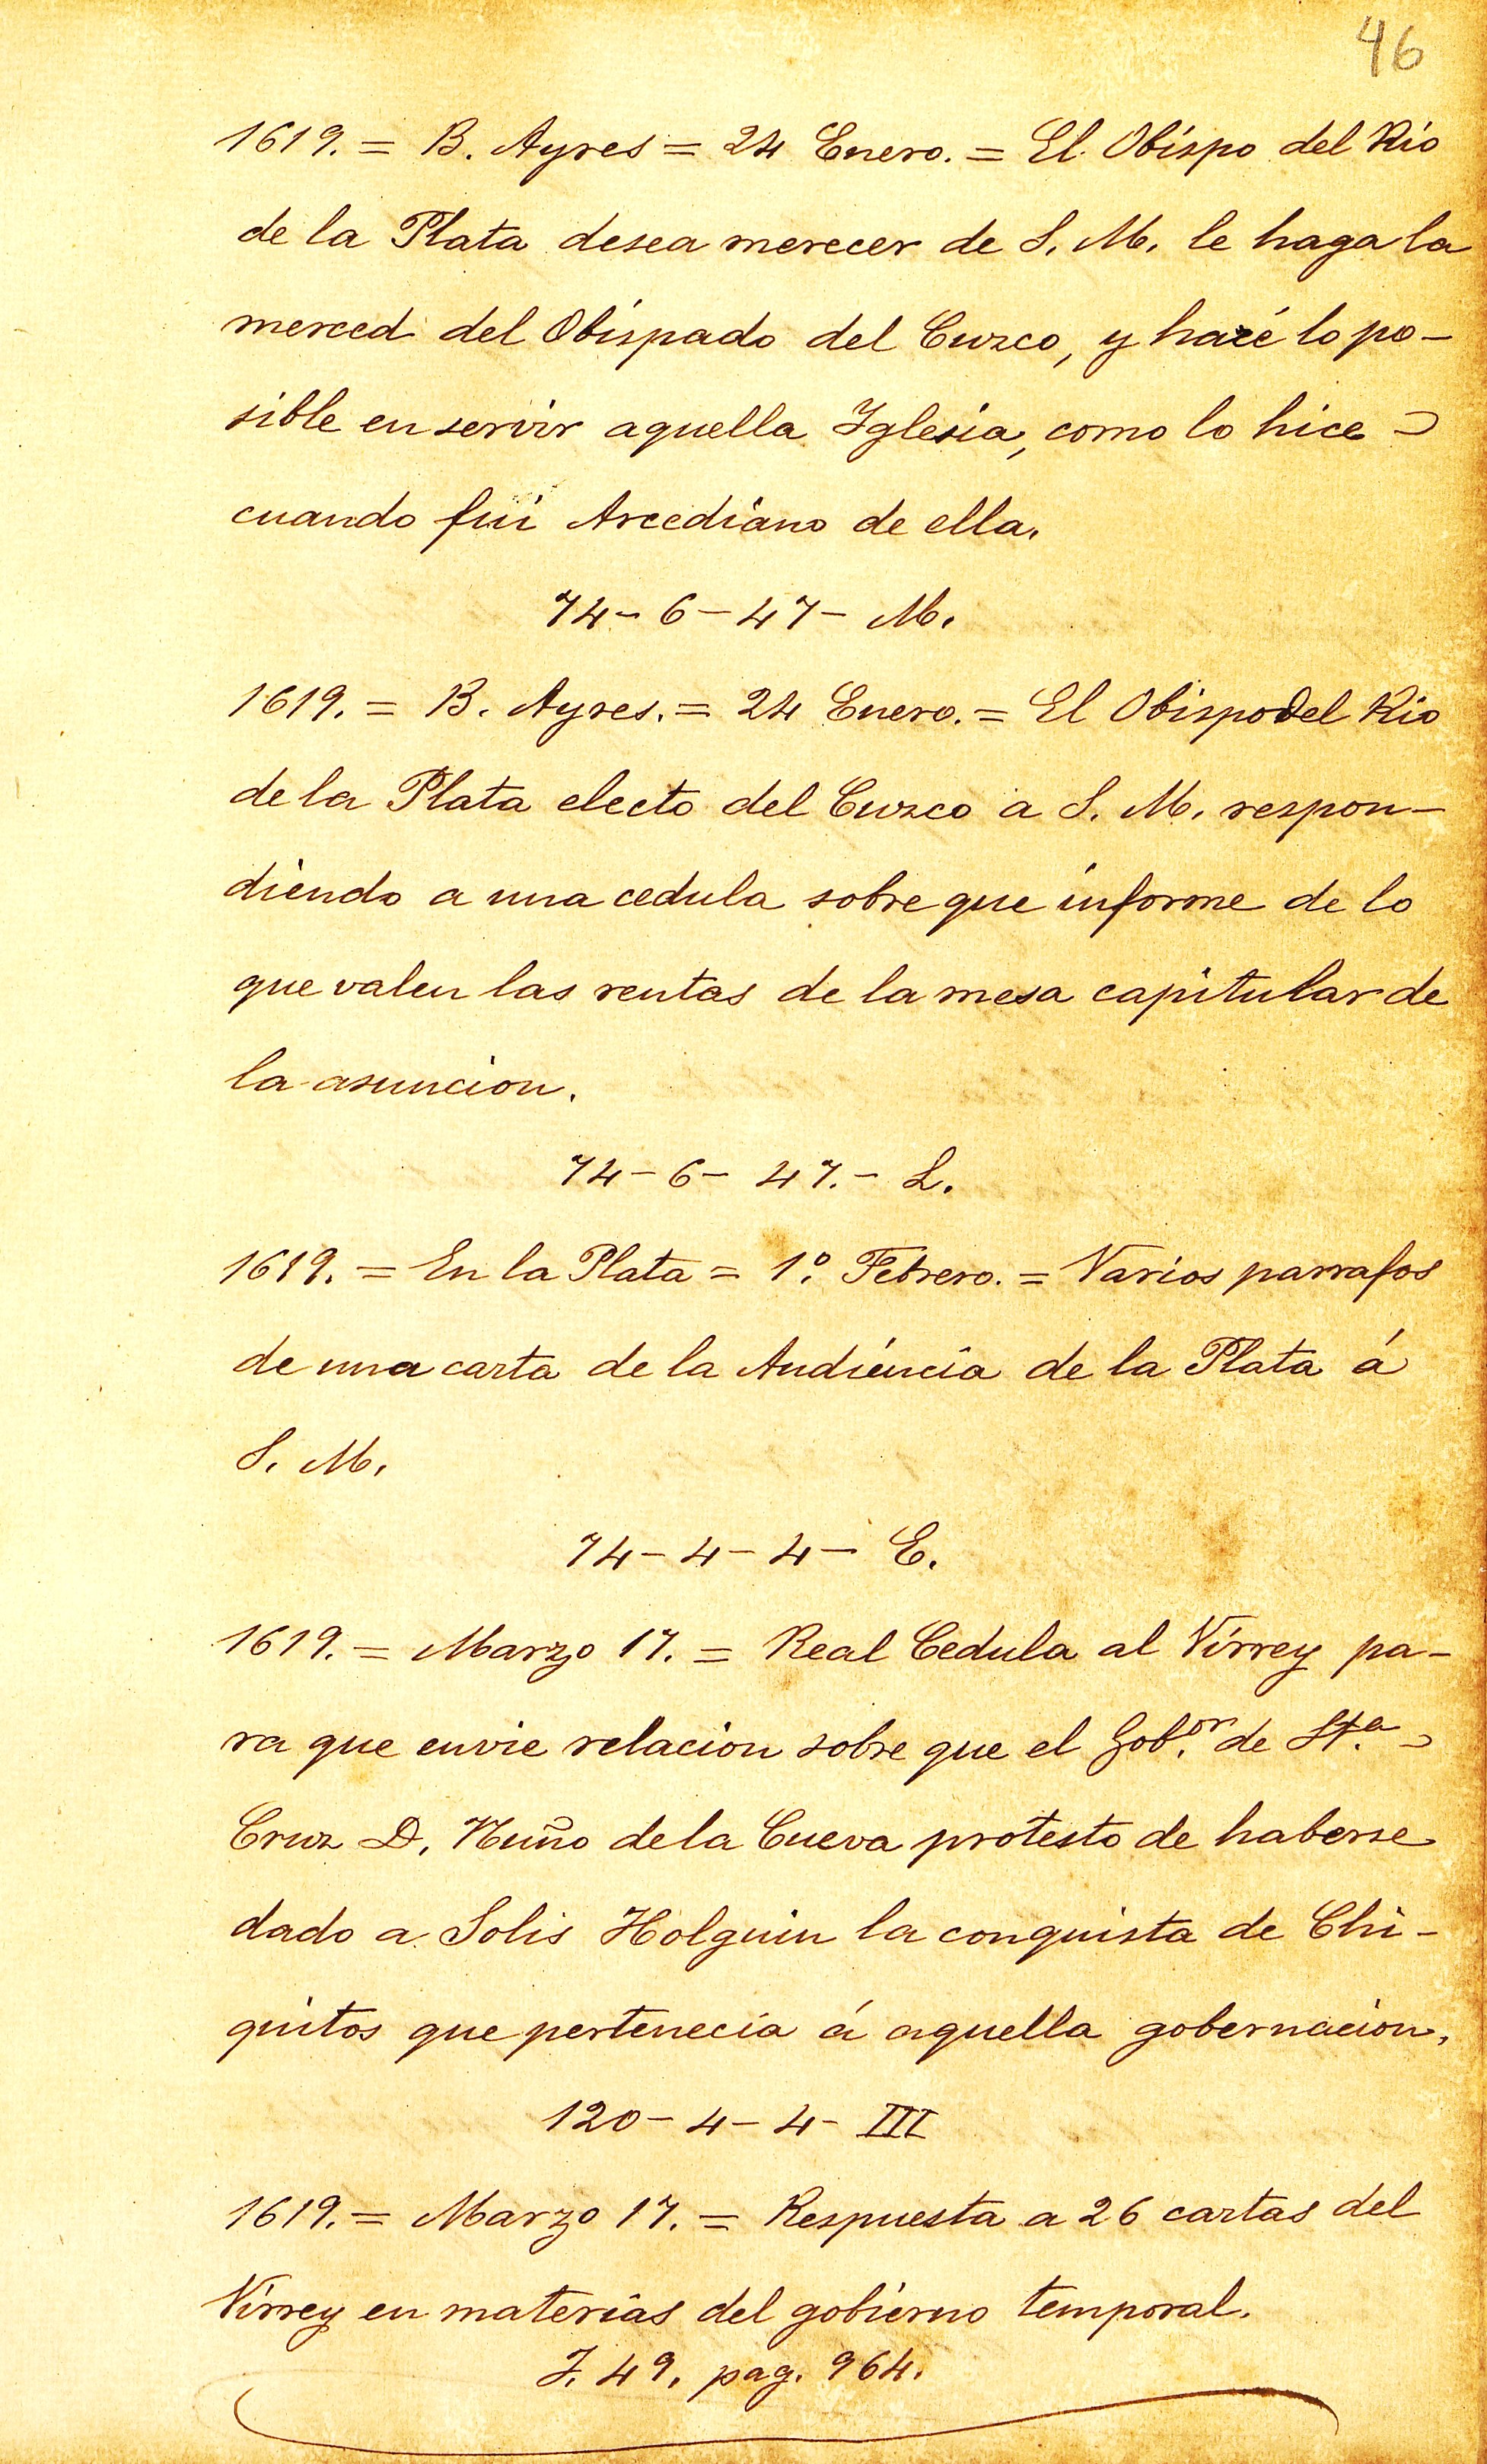 46
1619. = B. Ayres = 24 Enero. = El Obispo del Rio
de la Plata desea merecer de S. M. le haga la
merced del Obispado del Cuzco, y haré lo po-
sible en servir aquella Iglesia, como lo hice
cuando fui Arcediano de ella.
74-6-47- M.
1619. = B. Ayres. = 24 Enero. = El Obispo del Rio
de la Plata electo del Cuzco a S. M. respon-
diendo a una cedula sobre que informe de lo
que valen las rentas de la mesa capitular de
la asuncion.
74-6-47.- L.
1619. = En la Plata = 1º. Febrero. = Varios parrafos
de una carta de la Audiencia de la Plata á
S. M.
74-4-4- E.
1619. = Marzo 17. = Real Cedula al Virrey pa-
ra que envie relacion sobre que el Gob.or de Sta.
Cruz D. Nuño de la Cueva protesto de haberse
dado a Solis Holguin la conquista de Chi-
quitos que pertenecia á aquella gobernacion,
120-4-4- III
1619. = Marzo 17. = Respuesta a 26 cartas del
Virrey en materias del gobierno temporal.
J. 49, pag. 964.